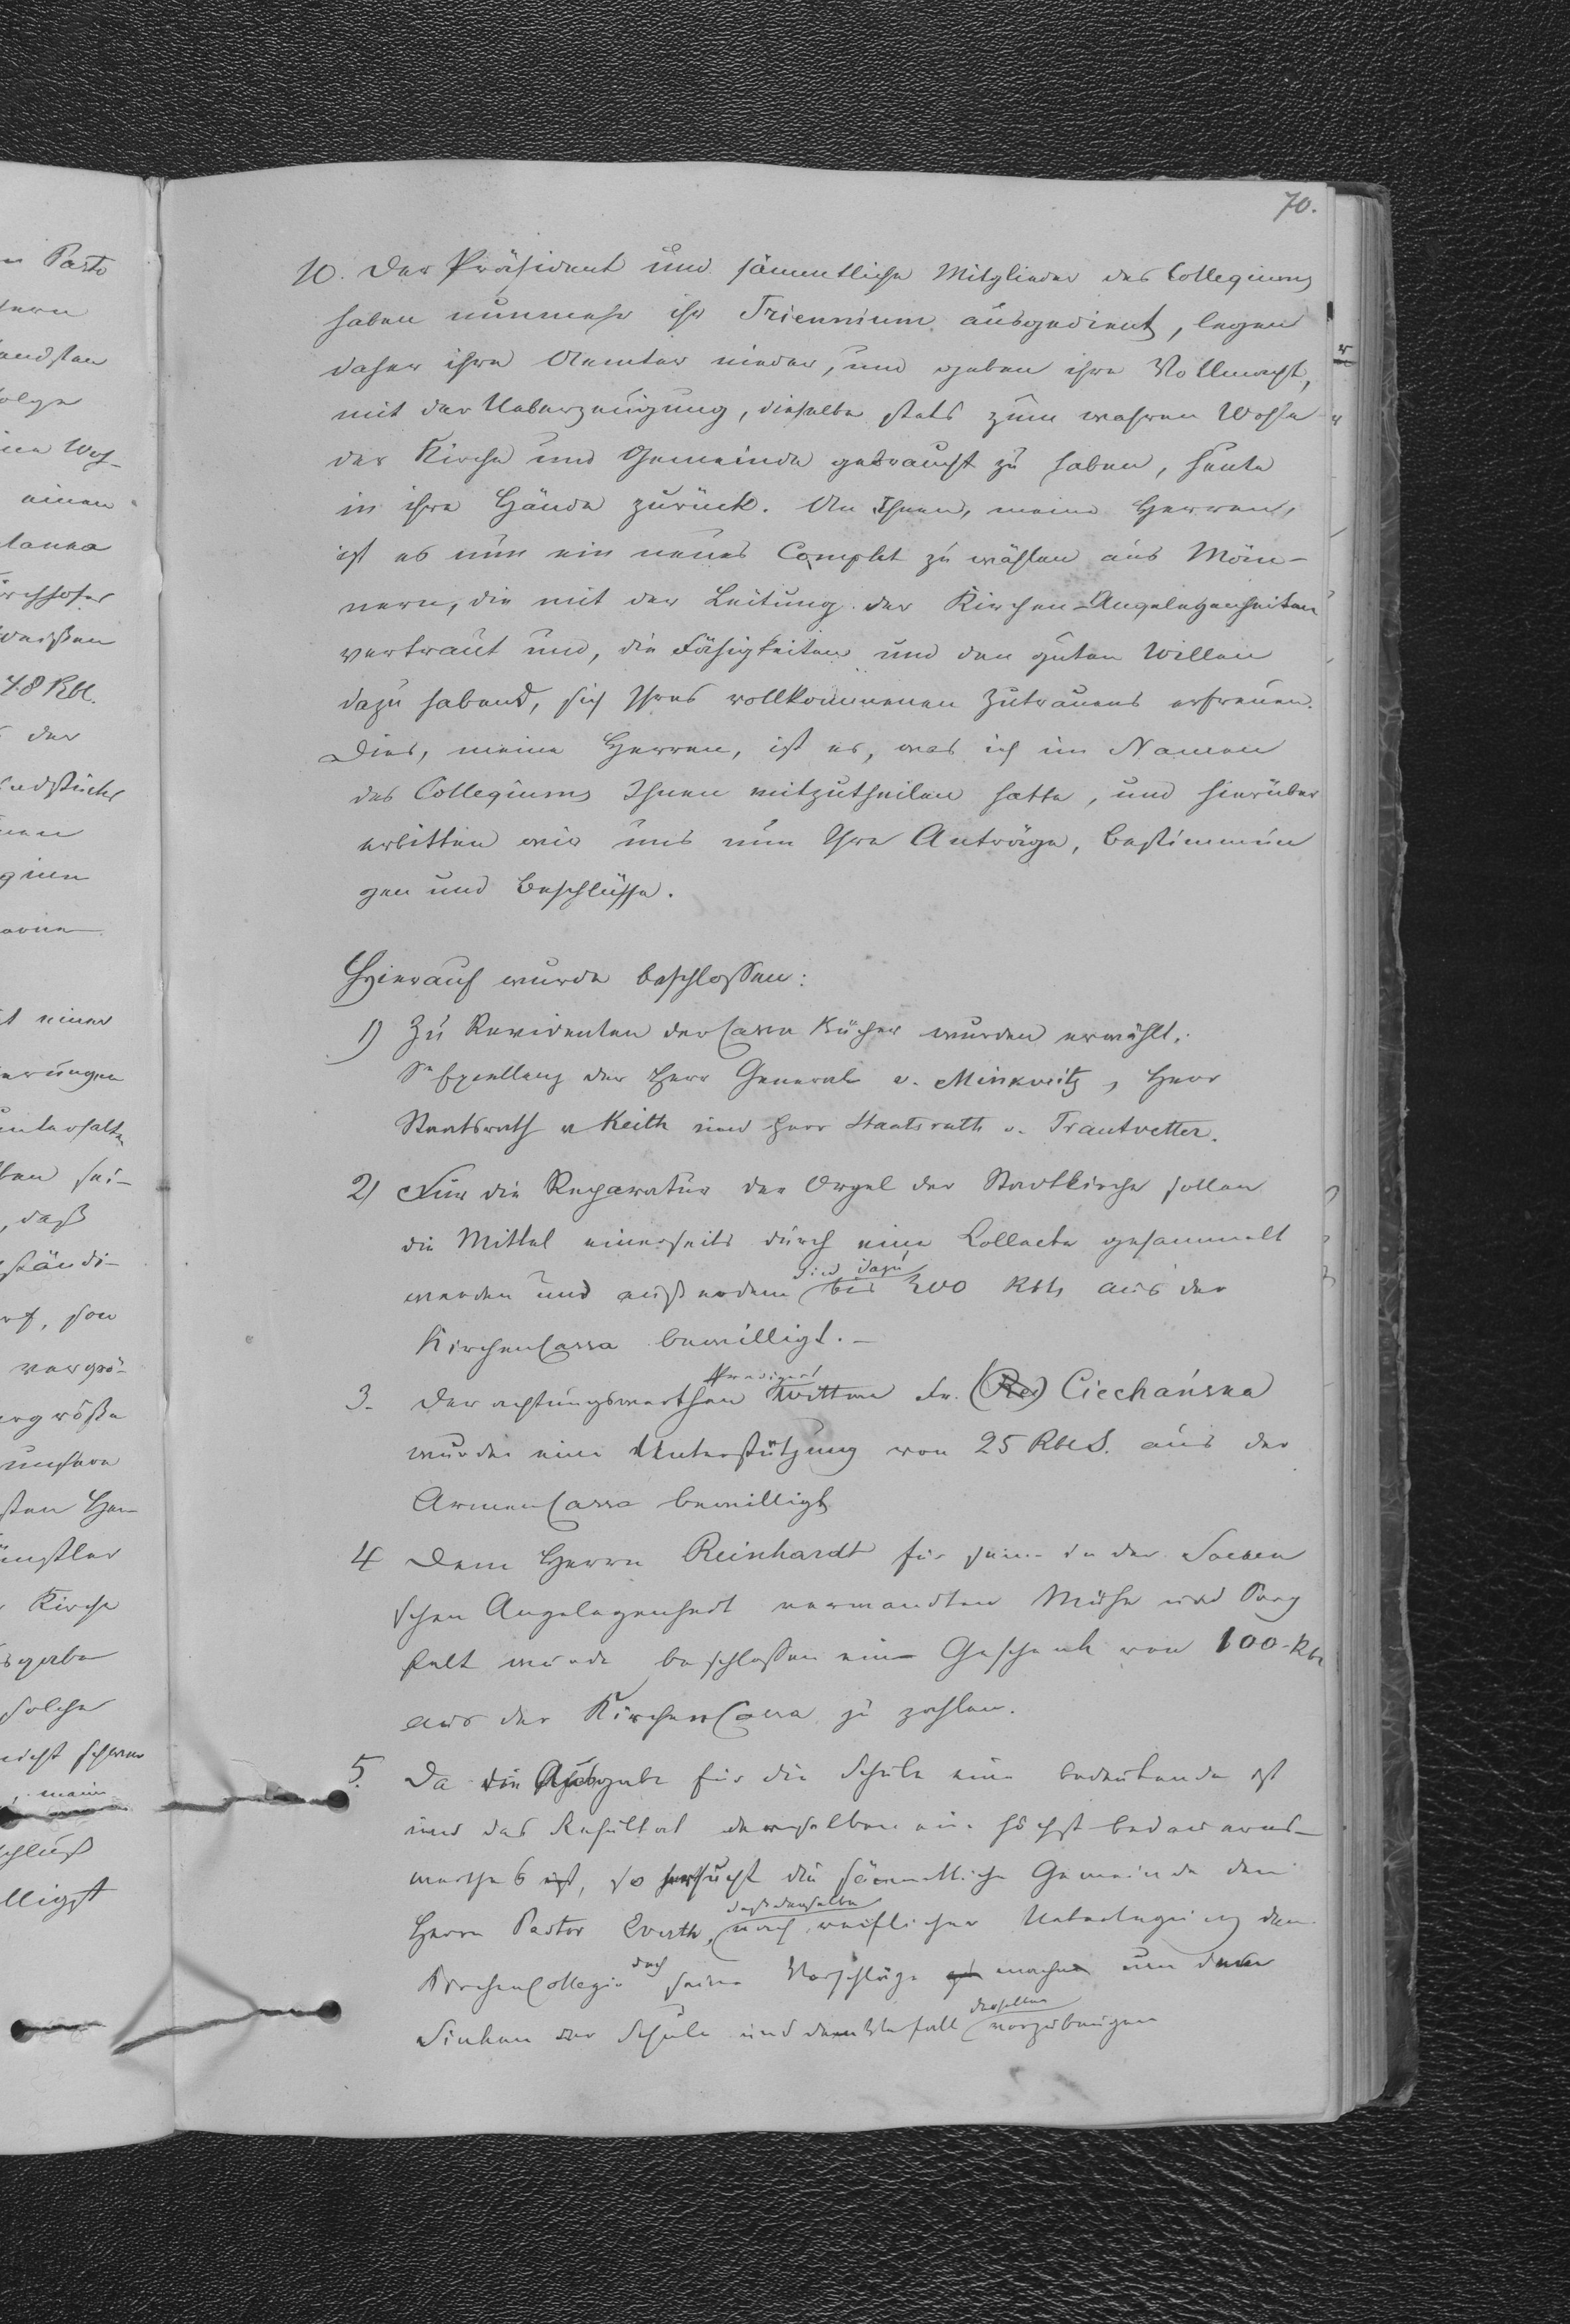 70.
10. Der Präsident und sämmtliche Mitglieder des Collegiums
haben nunmehr ihr Triennium ausgedient, legen
daher ihre Aemter nieder, und geben ihre Vollmacht,
mit der Ueberzeugung, dieselbe stets zum wahren Wohle
der Kirche und Gemeinde gebraucht zu haben, heute
in ihre Hände zurück. An Ihnen, meine Herren,
ist es nun ein neues Complet zu wählen aus Män-
nern, die mit der Leitung der Kirchen-Angelegenheiten
vertraut und, die Fähigkeiten und den guten Willen
dazu habend, sich Ihres vollkommenen Zutrauens erfreuen.
Dies, meine Herren, ist es, was ich im Namen
des Collegiums Ihnen mitzutheilen hatte, und hierüber
erbitten wir uns nun Ihre Anträge, Bestimmun
gen und Beschlüsse.
Hierauf wurde beschlossen:
1) Zu Revidenten der Cassa Bücher wurden erwählt.
Se Excellenz der Herr General v. Minkwitz, Herr
Staatsrath v Keith und Herr Staatsrath v. Trautvetter.
2) Für die Reparatur der Orgel der Stadtkirche sollen
die Mittel einerseits durch eine Collecte gesammelt
werden und außerdem sind dazu bis 300 Rbl aus der
KirchenCassa bewilligt. –
3. Der achtungswerthen Prediger Wittwe Fr. (Re) Ciechańska
wurde eine Unterstützung von 25 RblS. aus der
ArmenCassa bewilligt
4 Dem Herrn Reinhardt für seine in der
schen Angelegenheit verwandten Mühe und Sorg
falt wurde beschlossen ein Geschenk von 100 Rbl
aus der KirchenCassa zu zahlen.
5. Da die Ausgabe für die Schule eine bedeutende ist
und das Resultat derselben ein höchst bedauerns-
werthes ist, so ersucht die sämmtliche Gemeinde den
Herrn Pastor Everth, daß derselbe nach reiflicher Ueberlegung dem
KirchenCollegio doch seine Vorschläge mache um dem
Sinken der Schule und dem Verfall derselben vorzubeugen